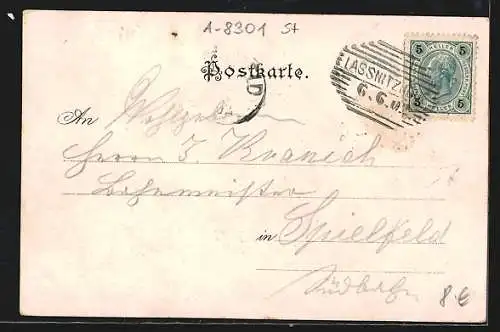 A-8301 St
5 5
LASSNITZ
6.6.
5 5
Postkarte.
An Wohlgeb
Herrn J. Kranich
Bahnmeister
in Spielfeld
Südbahn
8€